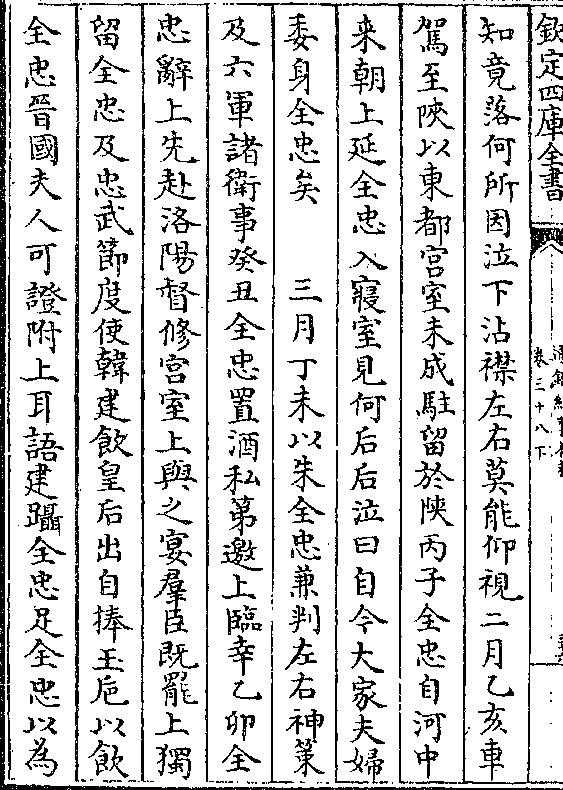 欽定四庫全書
卷三十八下
知竟落何所因泣下沾襟左右莫能仰視二月乙亥車
駕至陜以東都宫室未成駐留於陜丙子全忠自河中
来朝上延全忠入寢室見何后后泣曰自今大家夫婦
委身全忠矣 三月丁未以朱全忠兼判左右神策
及六軍諸衛事癸丑全忠置酒私第邀上臨幸乙卯全
忠辭上先赴洛陽督修宫室上與之宴羣臣既罷上獨
留全忠及忠武節度使韓建飲皇后出自捧玉巵以飲
全忠晉國夫人可證附上耳語建躡全忠足全忠以為